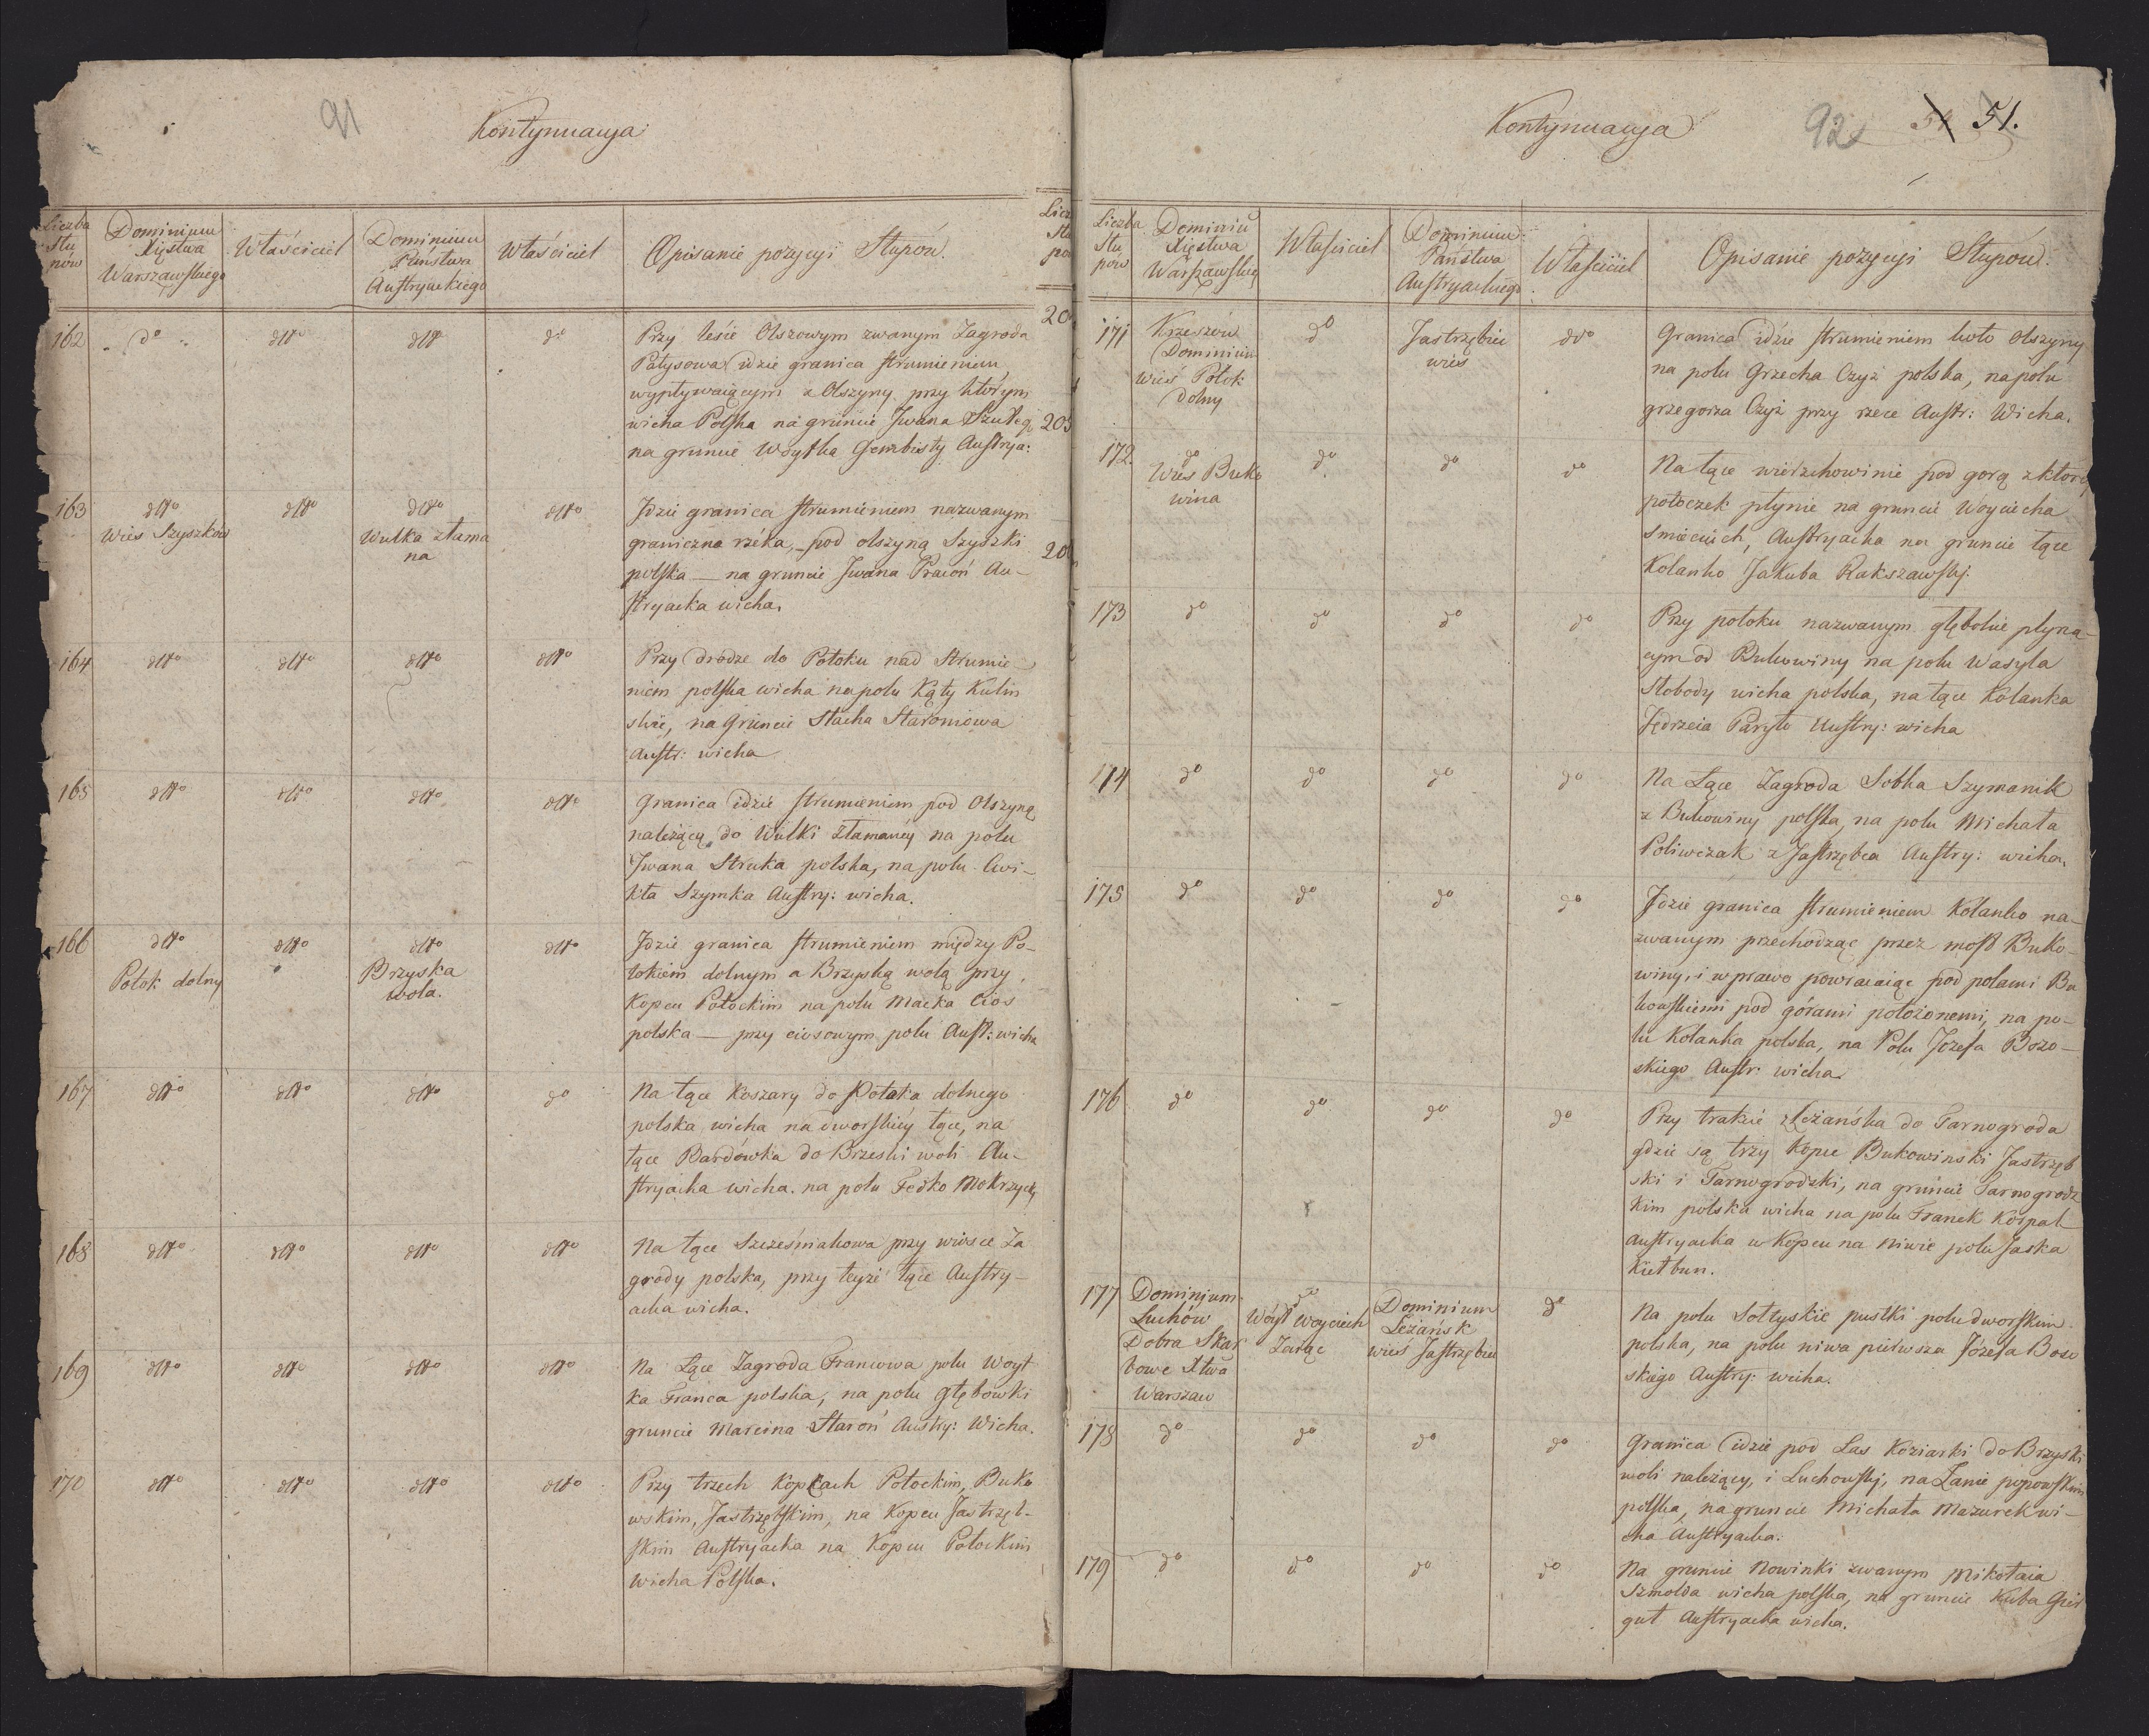 91
Kontynuacya
Liczba Słupów | Dominium Xięstwa Warszawskiego | Właściciel | Dominium Państwa Austryackiego | Właściciel | Opisanie pozycyi Słupów.
162 | do | dtto | dtto | do | Przy lesie Olszowym zwanym Zagroda
Patysowa idzie granica strumieniem
wypływaiącym z Olszyny przy którym
wicha Polska na gruncie Jwana
na gruncie Woytka Austrya:
163 | dtto Wieś Szyszków | dtto | dtto Wulka złamana | dtto | Jdzie granica strumieniem nazwanym
graniczna rzéka, pod olszyną Szyszki
polska — na gruncie Jwana Pracoń Au-
stryacka wicha.
164 | dtto | dtto | dtto | dtto | Przy drodze do Potoku nad Strumie-
niem polska wicha na polu Kąty Kulin
skie, na Gruncie Stacha Staroniowa
Austr: wicha
165 | dtto | dtto | dtto | dtto | Granica idzie strumieniem pod Olszyną
należącą do Wulki złamaney na polu
Jwana Struka polska, na polu Cwi-
kła Szymka Austry: wicha.
166 | dtto Potok dolny | dtto | dtto Brzyska wola. | dtto | Jdzie granica strumieniem między Po-
tokiem dolnym a Brzyską wolą przy
Kopcu Potockim na polu Macka Cios
polska — przy ciosowym polu Aust: wicha
167 | dtto | dtto | dtto | do | Na łące Koszary do Potoka dolnego
polska wicha na dworskiéy łące, na
łące Bardówka do Brzeski woli Au-
stryacka wicha. na polu Fedko Mokrzycky
168 | dtto | dtto | dtto | dtto | Na łące Szcześniakowa przy wiosce Za
grody polska, przy teyże łące Austry-
acka wicha.
169 | dtto | dtto | dtto | dtto | Na Łące Zagroda Francowa polu Woyt
ka Franca polska, na polu Głębowki
gruncie Marcina Staroń Austry: Wicha.
170 | dtto | dtto | dtto | dtto | Przy trzech Kopcach Potockim, Buko
wskim, Jastrzębskim, na Kopcu Jastrzęb-
skim Austryacka na Kopcu Potockim
wicha Polska.
20
205
20
Kontynuacya
92 51.
Liczba Słupów | Dominiu Xięstwa Warszawskieg | Właściciel | Dominium Państwa Austryackiego | Właściciel | Opisanie pozycyi Słupów.
171 | Krzeszów Dominium wieś Potok dolny | do | Jastrzębiec wieś | dto | Granica idzie strumieniem koło Olszyny
na polu Grzecha Czyż polska, na polu
grzegorza Czyż przy rzece Austr: Wicha.
172. | do Wieś Bukowina | do | do | do | Na łące wierzchowinie pod gorą z ktorey
potoczek płynie na gruncie Woyciecha
Smieciuch, Austryacka na gruncie łące
Kolanko Jakuba Rakszawsky.
173 | do | do | do | do | Przy potoku nazwanym głębokie płyną-
cym od Bukowiny na polu Wasyla
Słobody wicha polska, na łące Kolanka
Jędrzeia Paryło Austry: wicha
174 | do | do | do | do | Na Łące Zagroda Sobka Szymanik
z Bukowiny polska, na polu Michała
Poliwczak z Jastrzębca Austry: wicha.
175 | do | do | do | do | Jdzie granica strumieniem Kolanko na-
zwanym przechodząc przez most Buko-
winy, i w prawo powracaiąc pod polami Bu
kowskiemi pod górami położonemi, na po-
lu Kolanka polska, na Polu Józefa Bozo-
skiego Austr: wicha.
176 | do | do | do | do | Przy trakcie z Leżańska do Tarnogroda
gdzie są trzy Kopce Bukowinski Jastrzęb
ski i Tarnogrodzki, na gruncie Tarnogrodz
kim polska wicha na polu Franek Korpal
austryacka w Kopcu na Niwie polu Jaska
Kiełbun.
177 | Dominium Luchów Dobra Skarbowe Xtwa Warszaw | do Wóyt Woyciech Zając | Dominium Leżańsk wieś Jastrzębiec | do | Na polu Sołtyskie pustki polu dworskim
polska, na polu niwa piérwsza Józefa Bozo
skiego Austry: wicha.
178 | do | do | do | do | Granica idzie pod Las Koziarki do Brzyski
woli należący, i Luchowsky, na Łanie popowskim
polska, na gruncie Michała Mazurek wi-
cha Austryacka.
179 | do | do | do | do | Na gruncie Nowinki zwanym Mikołaia
Szmolda wicha polska, na gruncie Kuba
gut Austryacka wicha.